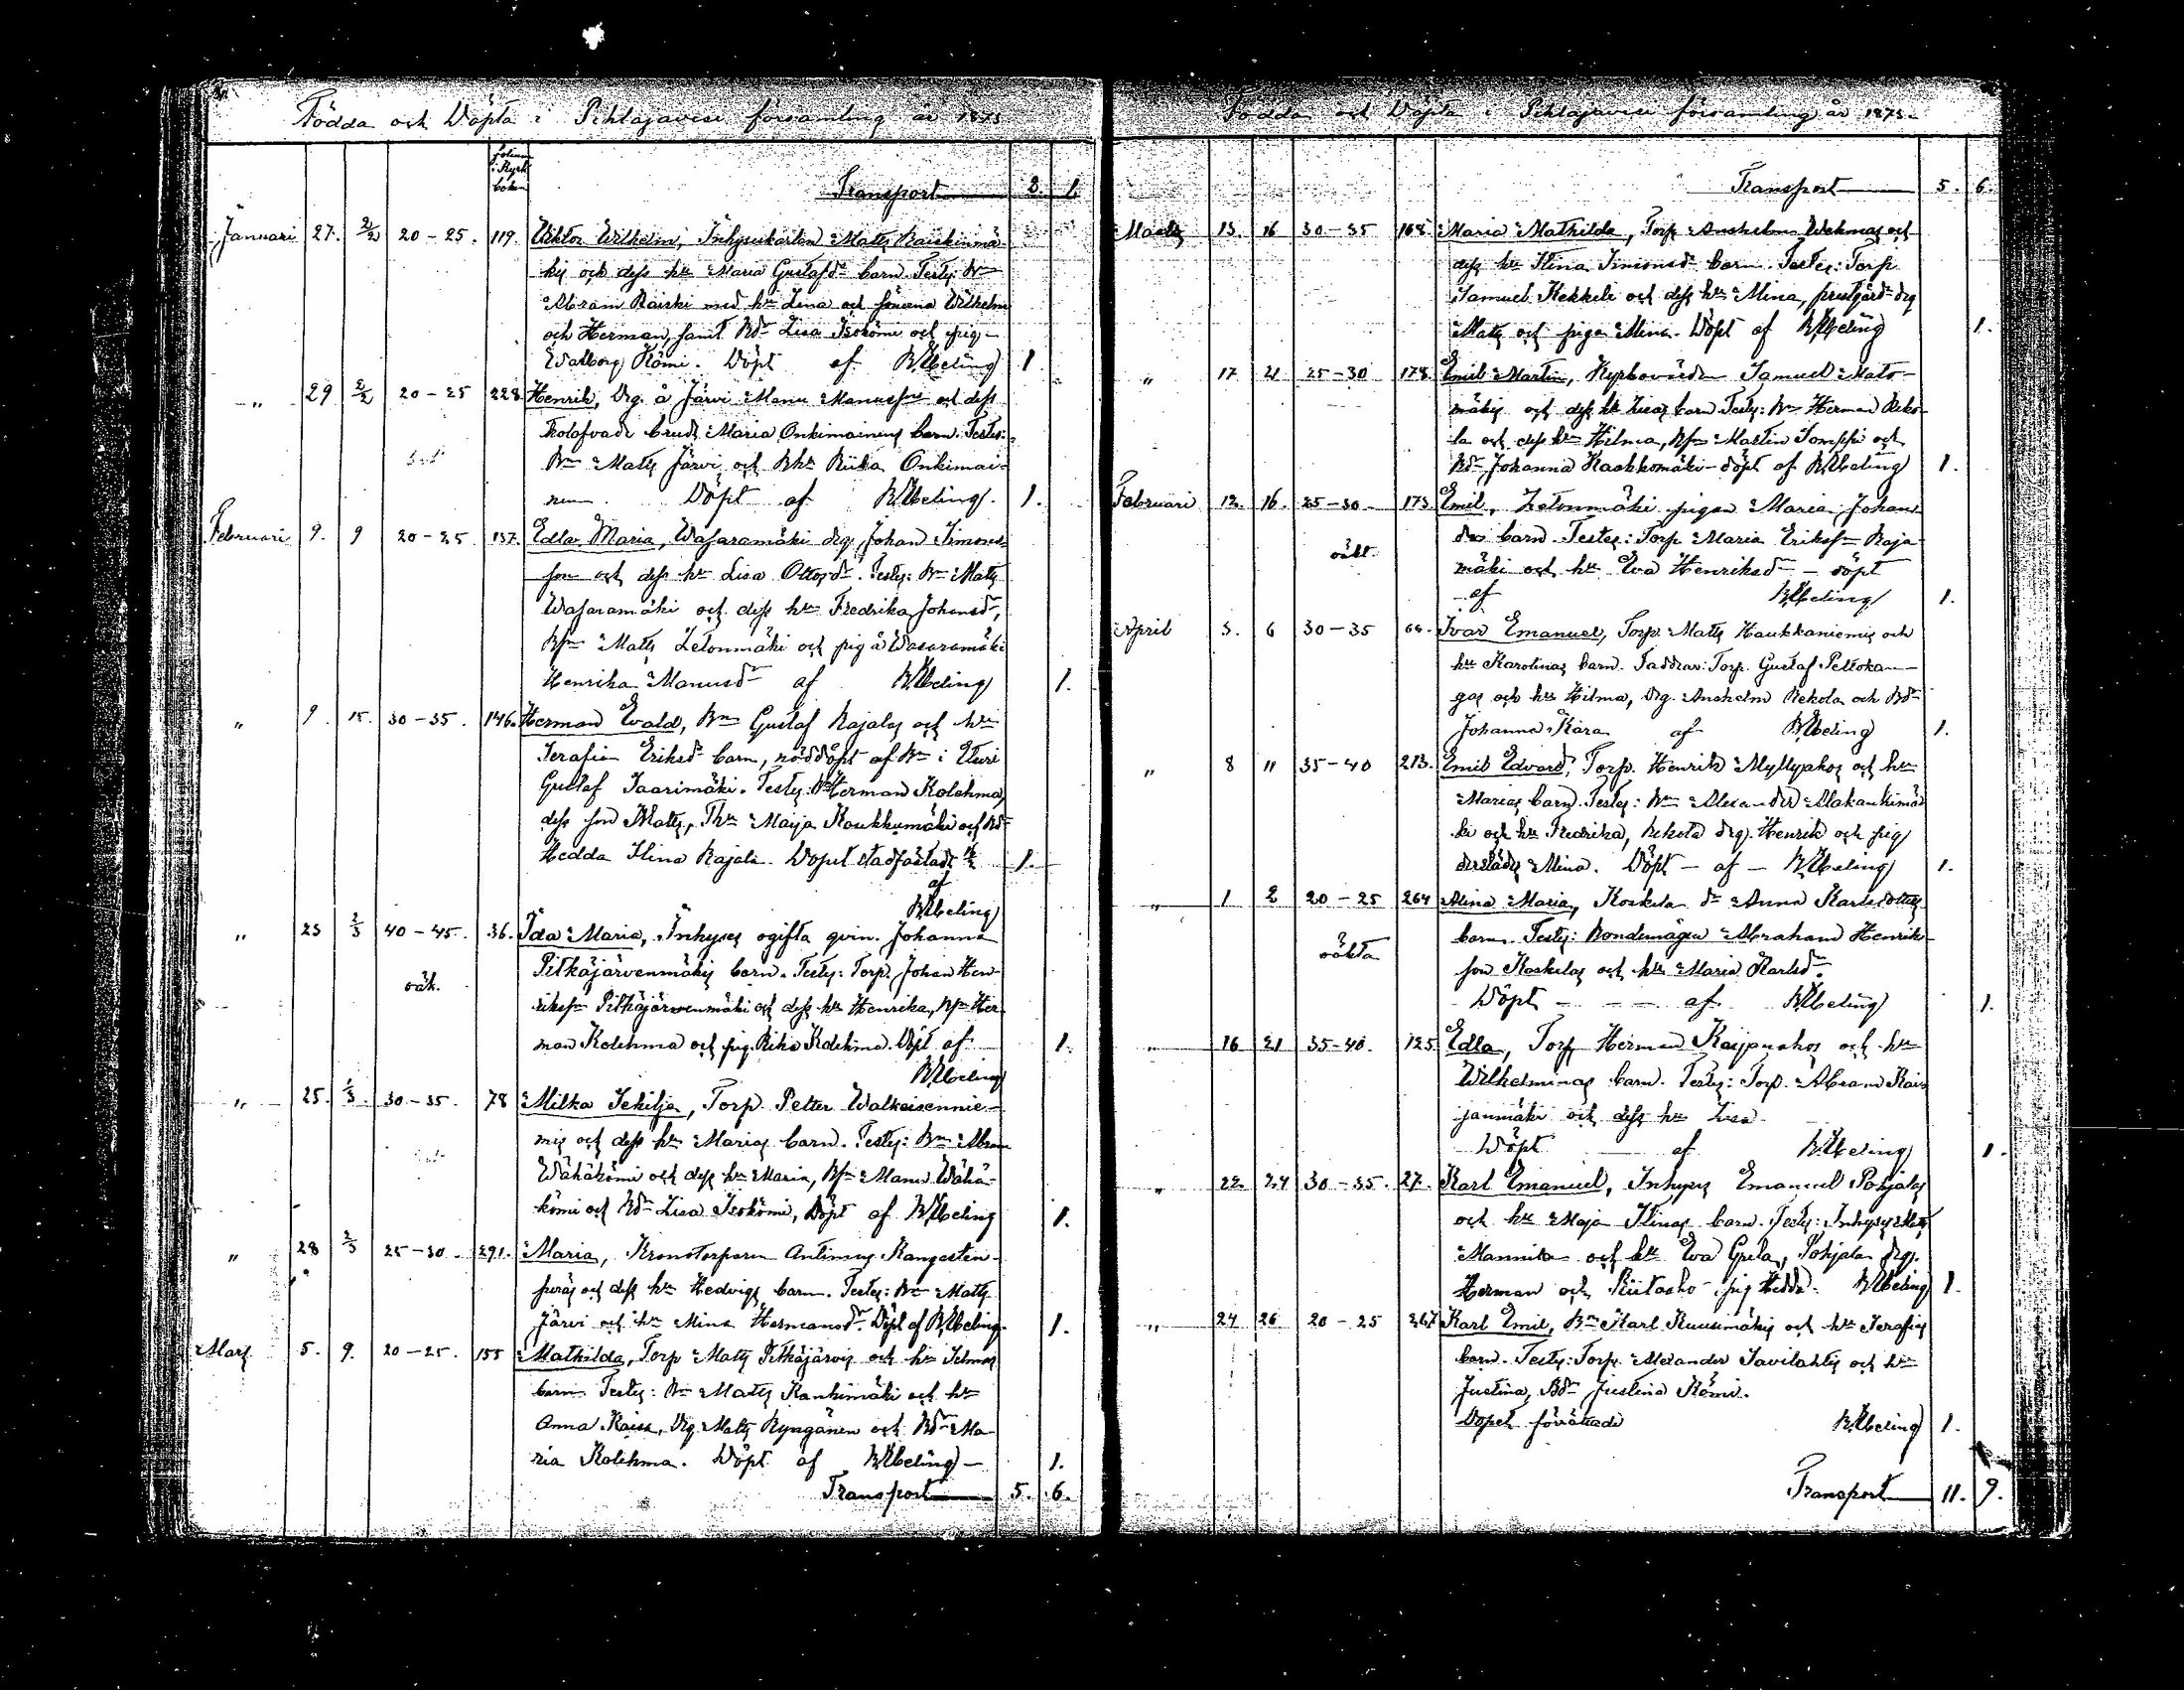 Födda och Döpta i Pihlajavesi församling år 1873
folium i Kyrk boken
Transport 2. 1.
Januari 27. 2/2 20-25. 119. Viktor Wilhelm, Inhysekarlen Matts Raiskinmä-
kis och dess hu Maria Gustafsdr barn. Testes: Bn
Abram Raiski med hu Lena och sönerna Wilhelm
och Herman, samt Bdr Lisa Isokömi och pig.
Walborg Kömi. Döpt af W. Ubeling 1.
" 29 2/2 20-25 228. Henrik, Drg. å Järvi Manu Manusson och dess
trolofvade brud Maria Onkimainens barn. Testes:
Bn Matts Järvi och Bhu Riika Onkimai-
nen. Döpt af Ubeling. 1.
Februari 9. 9 20-25. 137. Edla Maria, Wasaramäki drg. Johan Simons-
son och dess hu Lisa Ottosdr. Testes: Bn Matts
Wasaramäki och dess hu Fredrika Johansdr,
Bsn Matts Letonmäki och pig å Wasaramäki
Henrika Manusdr af Ubeling 1.
" 9. 15. 30-35. 146. Herman Evald, Bn Gustaf Rajalas och hu
Serafia Eriksdr barn, nöddöpt af Bn i
Gustaf Saarimäki. Testes: Bn Herman Kolehma,
dess son Matts, Thu Maija Koukkumäki och Bdr
Hedda Stina Rajala. Dopet stadfästadt
af
Ubeling 1.
" 23 2/3 40-45. 36. Ida Maria, Inhyses ogifta qvin. Johanna
Pitkäjärvenmäkis barn. Testes: Torp. Johan Hen-
oäk. rikssn Pitkäjärvenmäki och dess hu Henrika, Bsn Her-
man Kolehma och pig. Rika Kolehma. Döpt af 1.
Ubeling
" 25. 1/3. 30-35. 78 Milka Sekilja, Torp. Petter Walkeisennie-
mis och dess hu Marias barn. Testes: Bn Abram
Wähäkömi och dess hu Maria, Bsn Manu Wähä-
kömi och Bdr Lisa Isokömi, Döpt af Ubeling 1.
" 28 2/3 25-30. 291. Maria, Kronotorparen Antimus Kangasten-
peräs och dess hu Hedvigs barn. Testes: Bn Matts
Järvi och hu Mina Hermansdr. Döpt af Ubeling. 1.
Mars 5. 9. 20-25. 155 Mathilda, Torp Matts Pitkäjärvis och hu Selmas
barn Testes: Bn Matts Kankimäki och hu
Anna Kaisa, Drg. Matts Ryngänen och Bdr Ma-
ria Kolehma. Döpt af Ubeling 1.
Transport 5. 6.
Födda och Döpta i Pihlajavesi församling år 1873.
Transport 5. 6.
Mars 13. 16 30-35 168. Maria Mathilda, Torp Anshelm Wehmas och
dess hu Stina Simonsdr barn. Testes: Torp.
Samuel Kekkila och dess hu Mina, prestgård drg
Matts och piga Mina. Döpt af Ubeling 1.
" 17 21 25-30 178. Emil Martin, Kyrkovärden Samuel Mato-
mäkis och dess hu Lisas barn Testes: Bn Herman Reko-
la och dess hu Hilma, Bsn Martin Tomppi och
Bdr Johanna Haukkomäki - döpt af Ubeling 1.
Februari 12. 16. 25-30 173. Emil, Letonmäki pigan Maria Johans-
drs barn. Testes: Torp Maria Erikss Raja-
oäkt. mäki och hu Eva Henriksdr - döpt
af Ubeling 1.
April 3. 6 30-35 66. Ivar Emanuel, Torp. Matts Haukkaniemis och
hu Karolinas barn. Faddrar: Torp. Gustaf Peltokan-
gas och hu Hilma, Drg. Anshelm Rekola och Bdr
Johanna Kara af Ubeling 1.
" 8 11 35-40 273. Emil Edvard, Torp. Henrik Myllyahos och hu
Marias barn. Testes: Bn Alexander Alakankimä-
ki och hu Fredrika, Rekola drg. Henrik och pig
derstädes Mina. Döpt - af - Ubeling 1.
" 1 2 20-25 264 Alina Maria, Koskela dr Anna Karlsdotters
barn. Testes: Bondemågen Abraham Henriks-
oäkta son Koskelas och hu Maria Karlsdr.
Döpt - - - af Ubeling 1.
" 16 21 35-40. 125. Edla, Torp Herman Raijanahos och hu
Wilhelminas barn. Testes: Torp. Abram Rai-
janmäki och dess hu Lisa.
Döpt af Ubeling 1.
" 22. 24 30-35. 27. Karl Emanuel, Inhyses Emanuel Pohjalas
och hu Maja Stinas barn. Testes: Inhyses Matts
Mannila och hu Eva Greta, Pohjala drg.
Herman och Riitaaho pig Hedda. Ubeling 1.
" 24 26 20-25 267 Karl Emil, Bn Karl Kuusimäkis och hu Serafias
barn. Testes: Torp. Alexander Savilahtis och hu
Justina, Bdr Justina Kömi.
Dopet förrättade Ubeling 1.
Transport 11. 9.